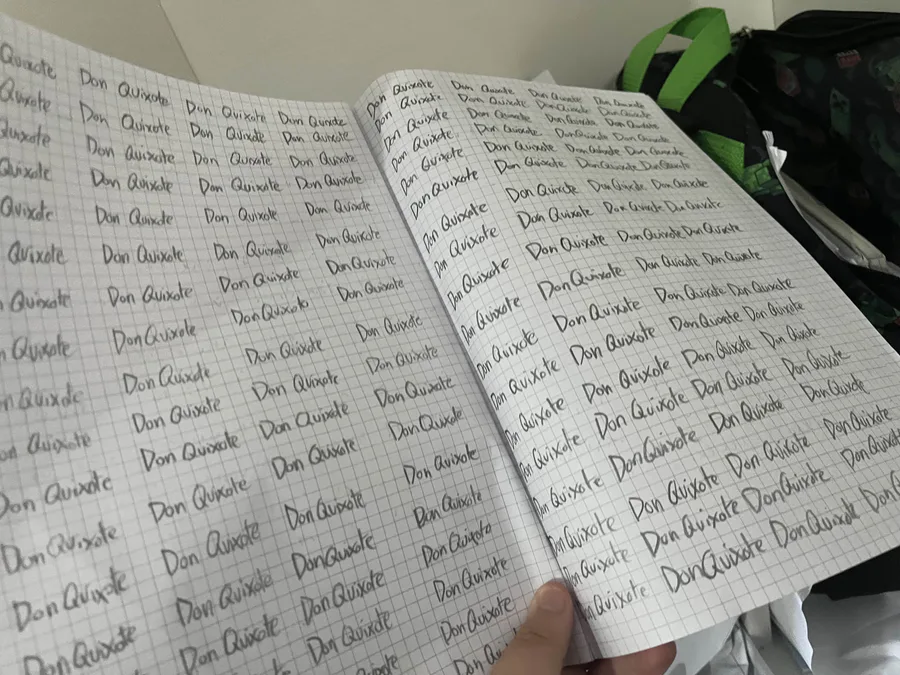 Quixote Don Quixote Don Quixote Don Quixote
Quixote Don Quixote Don Quixote Don Quixote
Quixote Don Quixote Don Quixote Don Quixote
Quixote Don Quixote Don Quixote Don Quixote
Quixote Don Quixote Don Quixote Don Quixote
Quixote Don Quixote Don Quixote Don Quixote
Quixote Don Quixote Don Quixote Don Quixote
Quixote Don Quixote Don Quixote Don Quixote
Don Quixote Don Quixote Don Quixote Don Quixote
Don Quixote Don Quixote Don Quixote Don Quixote
Don Quixote Don Quixote Don Quixote Don Quixote
Don Quixote Don Quixote Don Quixote Don Quixote
Don Quixote Don Quixote Don Quixote Don Quixote
Don Quixote Don Quixote Don Quixote Don Quixote
Don Quixote Don Quixote Don Quixote Don Quixote
Don Quixote Don Quixote Don Quixote Don Quixote
Don Quixote Don Quixote Don Quixote Don Quixote
Don Quixote Don Quixote Don Quixote Don Quixote
Don Quixote Don Quixote Don Quixote Don Quixote
Don Quixote Don Quixote Don Quixote Don Quixote
Don Quixote Don Quixote Don Quixote Don Quixote
Don Quixote Don Quixote Don Quixote Don Quixote
Don Quixote Don Quixote Don Quixote Don Quixote
Don Quixote Don Quixote Don Quixote Don Quixote
Don Quixote Don Quixote Don Quixote Don Quixote
Don Quixote Don Quixote Don Quixote Don Quixote
Don Quixote Don Quixote Don Quixote Don Quixote
Don Quixote Don Quixote Don Quixote Don Quixote
Don Quixote Don Quixote Don Quixote Don Quixote
Don Quixote Don Quixote Don Quixote Don Quixote